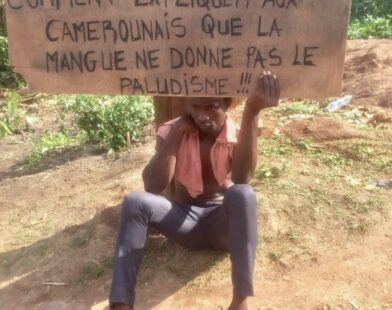 COMMENT EXPLIQUER AUX
CAMEROUNAIS QUE LA
MANGUE NE DONNE PAS LE
PALUDISME !!!